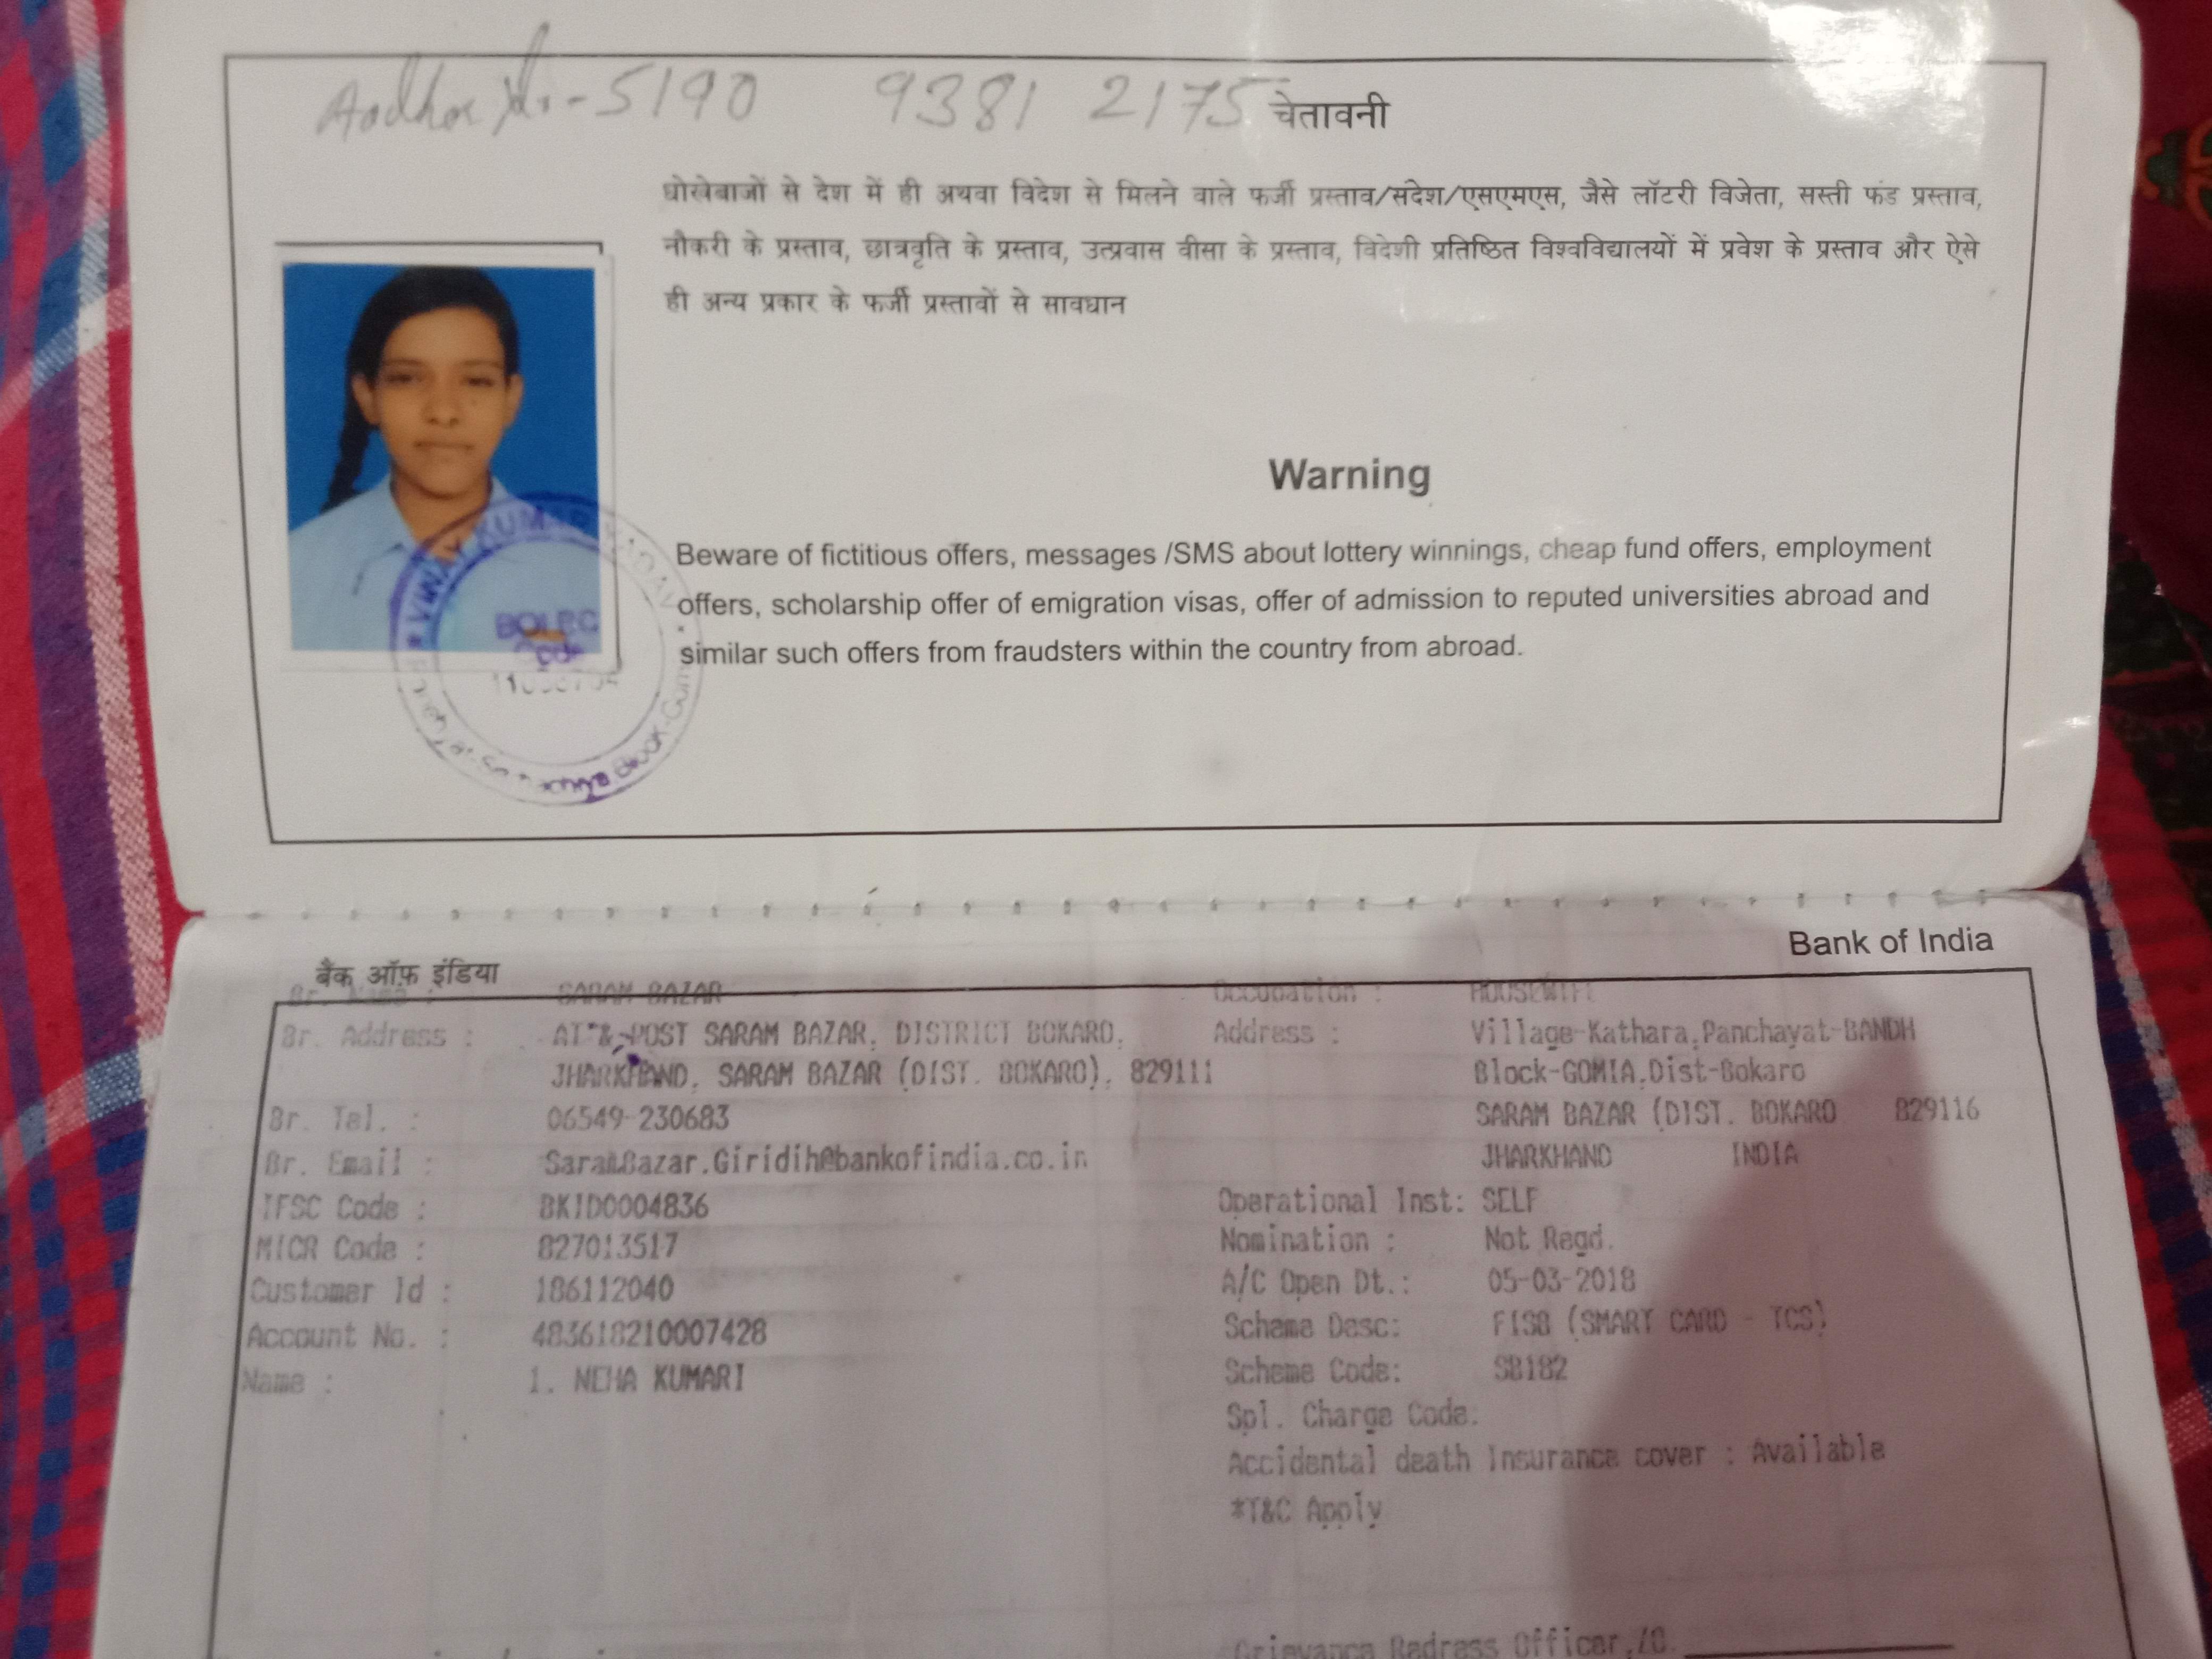 Aadhar No.-5190 9381 2175
चेतावनी
धोखेबाजों से देश में ही अथवा विदेश से मिलने वाले फर्जी प्रस्ताव/संदेश/एसएमएस, जैसे लॉटरी विजेता, सस्ती फंड प्रस्ताव,
नौकरी के प्रस्ताव, छात्रवृति के प्रस्ताव, उत्प्रवास वीसा के प्रस्ताव, विदेशी प्रतिष्ठित विश्वविद्यालयों में प्रवेश के प्रस्ताव और ऐसे
ही अन्य प्रकार के फर्जी प्रस्तावों से सावधान
Warning
Beware of fictitious offers, messages /SMS about lottery winnings, cheap fund offers, employment
offers, scholarship offer of emigration visas, offer of admission to reputed universities abroad and
similar such offers from fraudsters within the country from abroad.
VINAY KUMAR YADAV
BOI BC
Code
Block-Gomia
बैंक ऑफ़ इंडिया Bank of India
Br. Name : SARAM BAZAR Occupation : HOUSEWIFE
Br. Address : AT & POST SARAM BAZAR, DISTRICT BOKARO, Address : Village-Kathara,Panchayat-BANDH
JHARKHAND, SARAM BAZAR (DIST. BOKARO), 829111 Block-GOMIA,Dist-Bokaro
Br. Tel. : 06549-230683 SARAM BAZAR (DIST. BOKARO 829116
Br. Email : SaramBazar.Giridih@bankofindia.co.in JHARKHAND INDIA
IFSC Code : BKID0004836 Operational Inst: SELF
MICR Code : 827013517 Nomination : Not Regd.
Customer Id : 186112040 A/C Open Dt.: 05-03-2018
Account No. : 483618210007428 Scheme Desc: FISB (SMART CARD - TCS)
Name : 1. NEHA KUMARI Scheme Code: SB182
Spl. Charge Code:
Accidental death Insurance cover : Available
*T&C Apply
Grievance Redress Officer,ZO.